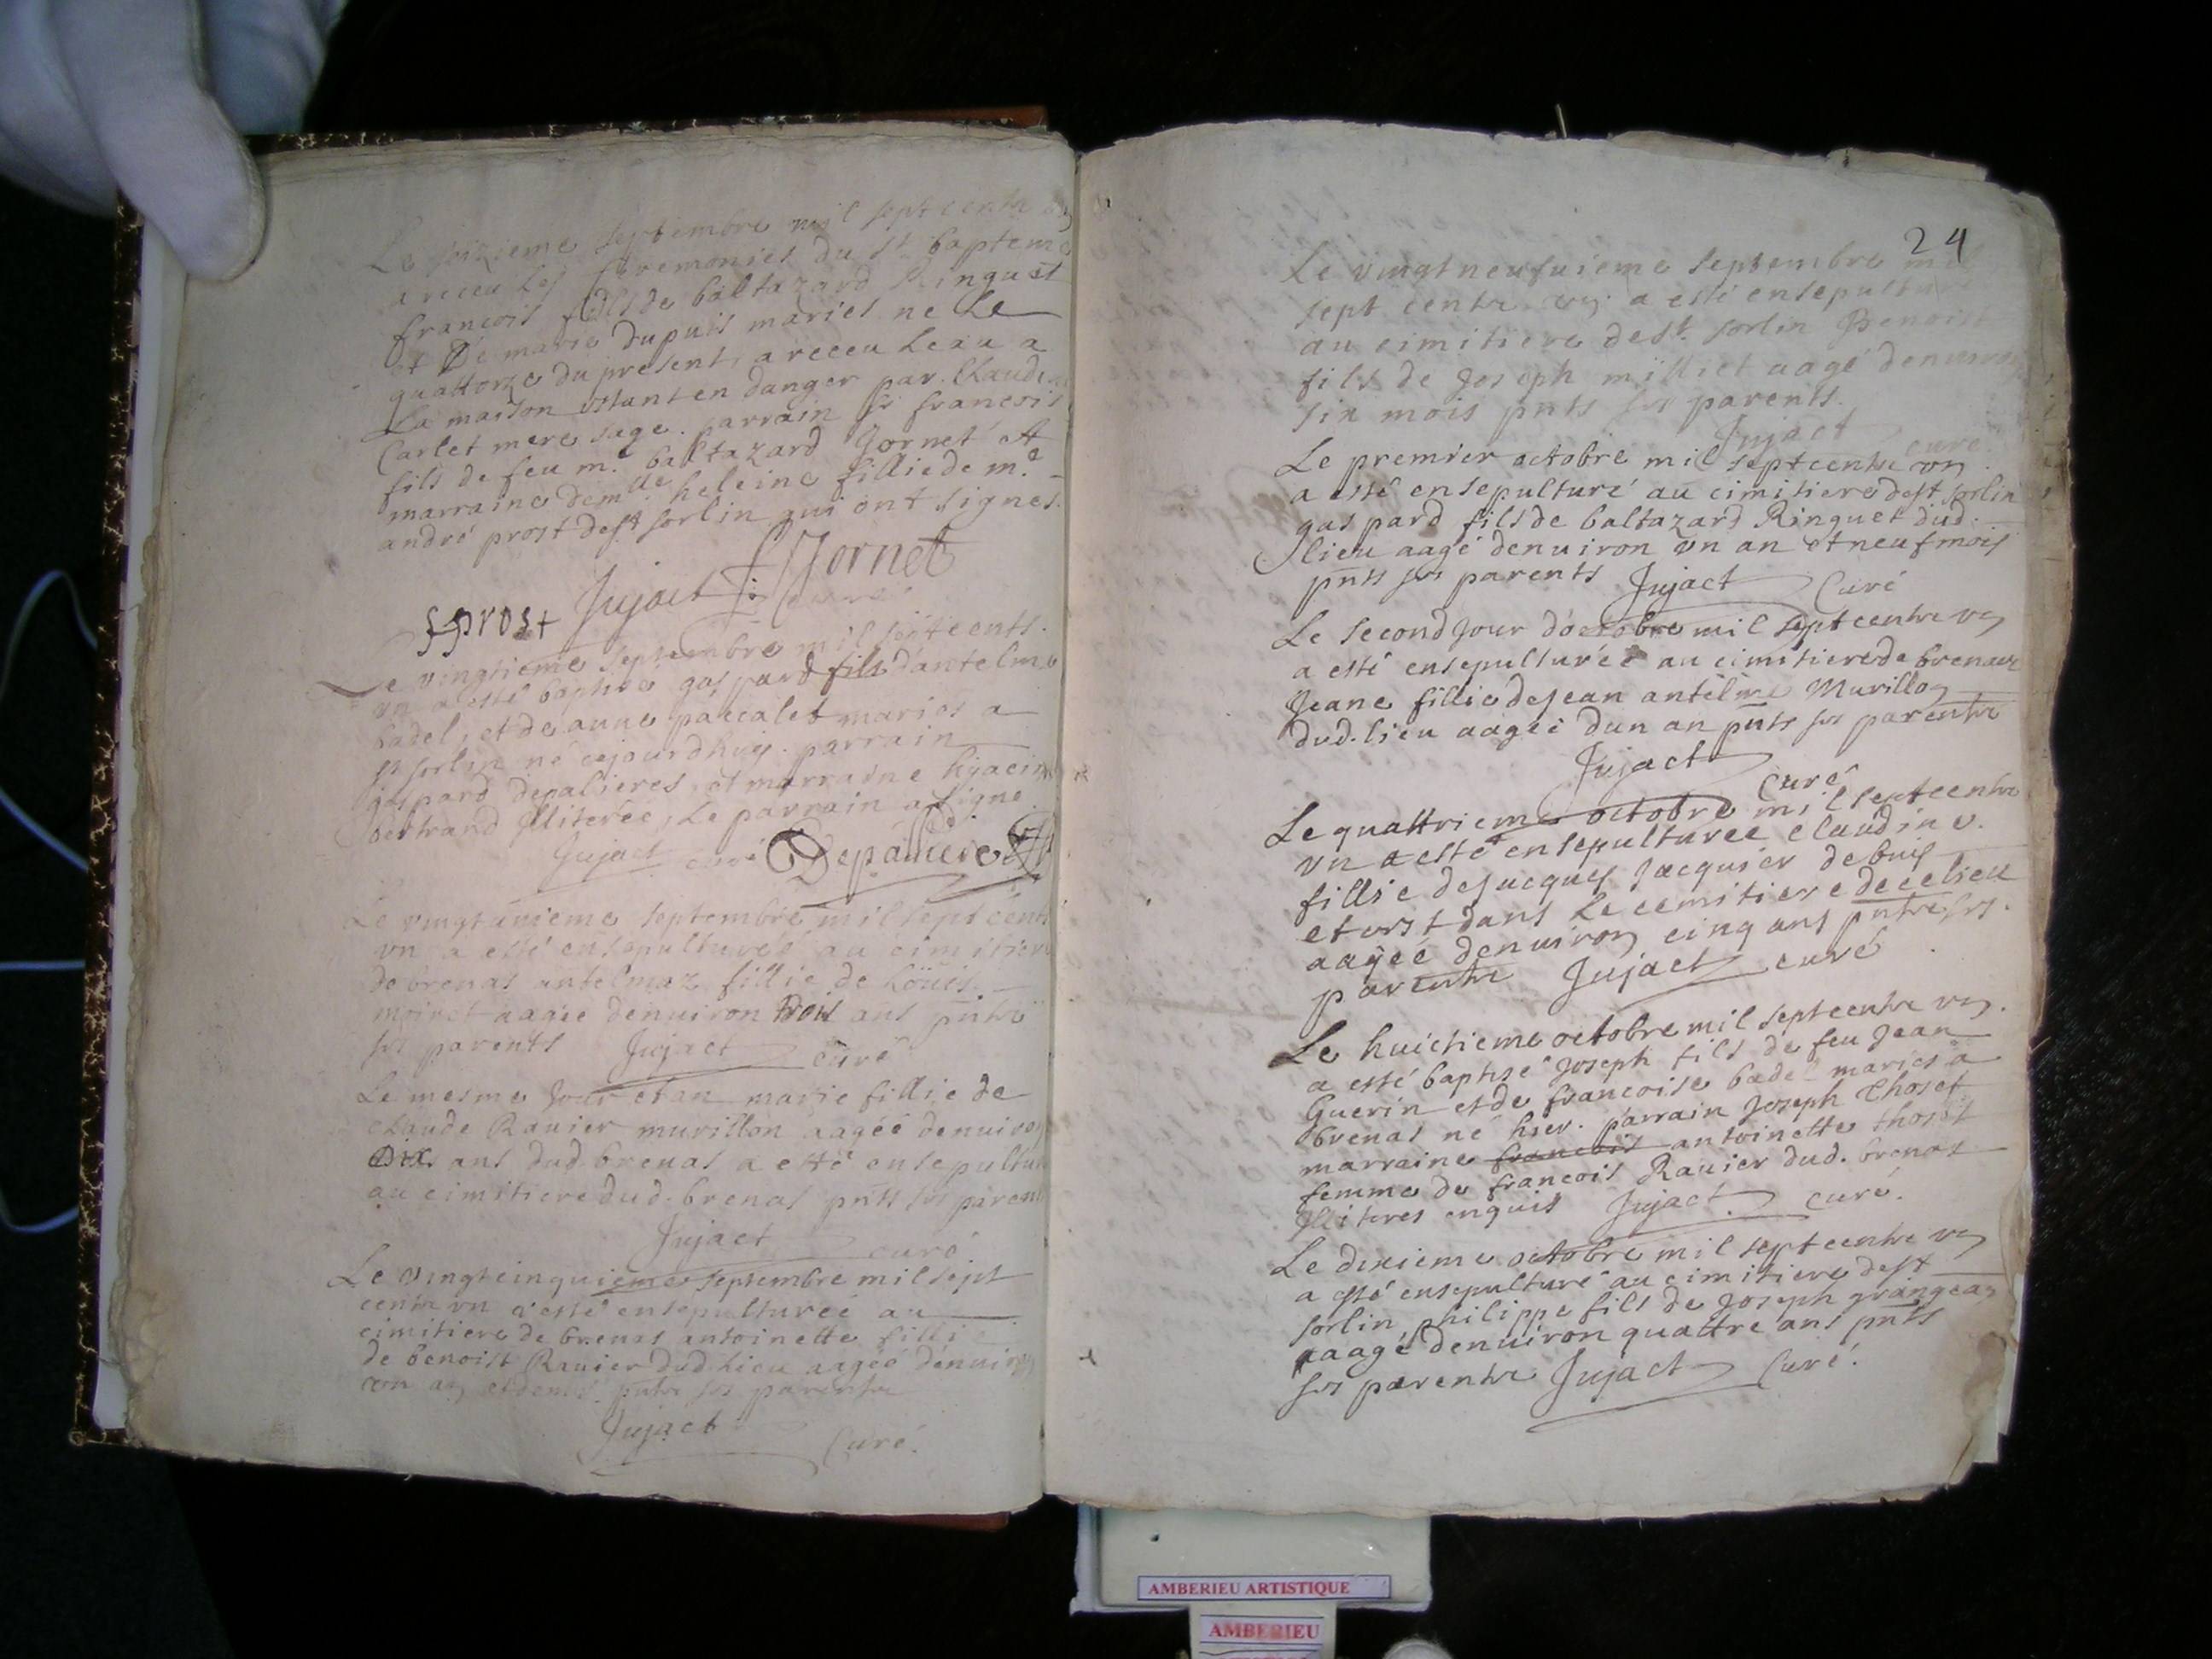 Le seizieme septembre mil sept cents un
a receu les ceremonies du st bapteme
francois fils de baltazard Ringuet
et De marie dupuis mariés ne Le
quattorze du present, a receu Leau a
La maison estant en danger par Claudine
Carlet mere sage. parrain sr francois
fils de feu m.e baltazard Jornet et
marraine dem.lle heleine fillie de m.e
andré prost de st sorlin qui ont signes.
fJornet
fprost Jujact curé
Le vingtieme septembre mil sept cents
vn a esté baptisé gaspard fils d'antelme
badel, et de anne paccalet mariés a
st sorlin né cejourdhuy. parrain
gaspard depalieres, et marraine hÿacin
bertrand Jlliterée, Le parrain a signe
Jujact curé Depaliere
Le vingtunieme septembre mil sept cents
vn a esté ensepulturée au cimitiere
de brenas antelmaz fillie de Loüis
moiret aagée denuiron trois ans pnts
ses parents Jujact curé
Le mesme Jour et an marie fillie de
claude Rauier murillon aagéé denuiron
dix ans dud. brenas a esté ensepultur
au cimitiere dud. brenas pnts ses paren
Jujact curé
Le vingtcinquieme septembre mil sept
cents vn a esté ensepulturéé au
cimitiere de brenas antoinette filli
de benoist Rauier dud. Lieu aagéé dénuiron
vn an et demi pnts ses parents
Jujact
Curé.
24
Le vingtneufuieme septembre mil
sept cents un a esté ensepulturé
au cimitiere de st sorlin Benoist
fils de Joseph milliet aagé denuiron
six mois pnts ses parents.
Jujact curé
Le premier octobre mil septcents vn
a esté ensepulturé au cimitiere de st sorlin
gaspard fils de baltazard Ringuet dud.
lieu aagé denuiron vn an et neuf mois
pnts ses parents Jujact Curé
Le second Jour d'octobre mil septcents vn
a esté ensepulturéé au cimitiere de brenaz
Jeane fillie de Jean antelme Murillon
dud. lieu aagéé dun an pnts ses parents
Jujact
curé
Le quattrieme octobre mil septcents
vn a esté ensepulturée claudine
fillie de Jacques Jacquier de buis
et est dans Le cemitiere de ce lieu
aagéé denuiron cinq ans pnts ses
parents Jujact curé
Le huictieme octobre mil septcents vn
a esté baptisé Joseph fils de feu Jean
Guerin et de francoise badel mariés a
brenas né hier. parrain Joseph Thoset
marraine francois antoinette thoset
femme de francois Rauier dud. brenas
Jlliteres enquis Jujact curé.
Le dixieme octobre mil septcents vn
a esté ensepulturé au cimitiere de st
sorlin philippe fils de Joseph grangean
aagé denuiron quattre ans pnts
ses parents Jujact Curé.
AMBERIEU ARTISTIQUE
AMBERIEU